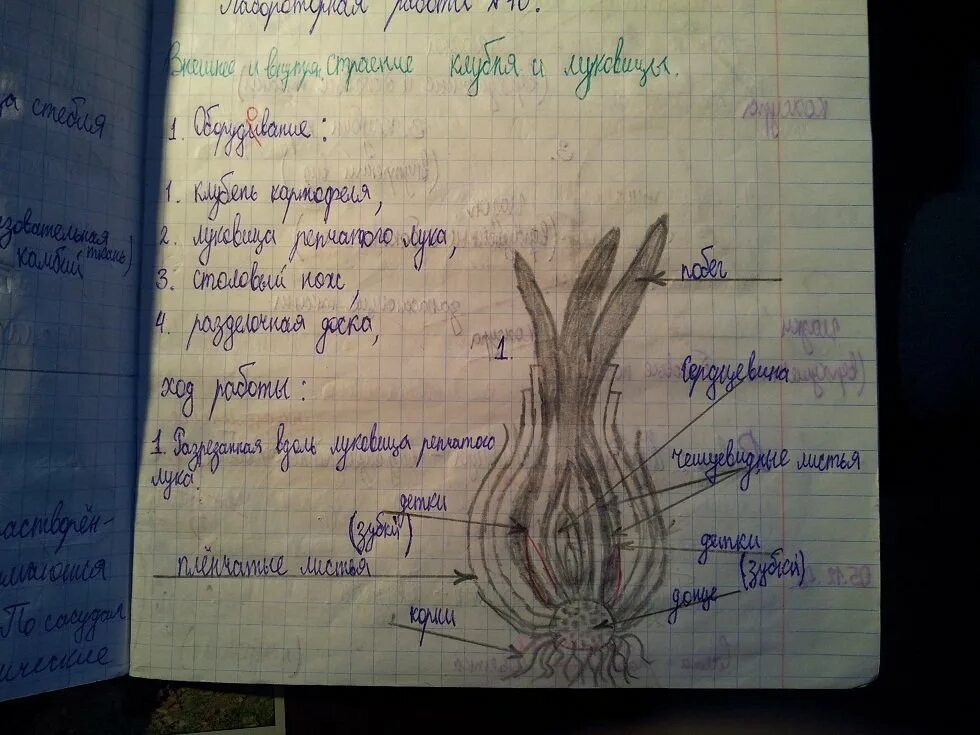 Лабораторная работа №10.
Внешнее и внутрн. страение клубня и луковицы.
1. Оборудование:
1. клубень картофеля,
2. луковица репчатого лука,
3. столовый нож,
4. разделочная доска,
ход работы:
1. Разрезанная вдоль луковица репчатого
лука.
1.
побег
Сердцевина
чешуевидные листья
детки
(зубки)
плёнчатые листья
детки
(зубки)
донце
корни
стебля
зовательная
ткань)
камбий
астворён-
По сосудам
ические
кожура